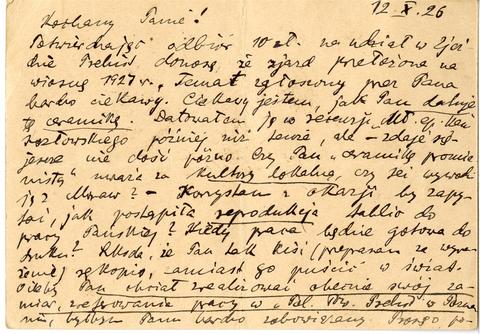 12 X. 26
Kochany Panie!
Potwierdzając odbiór 10 zł. na udział w Zjeź
dzie Prehist, donoszę, że zjazd przełożono na
wiosnę 1927 r. Temat zgłoszony przez Pana
bardzo ciekawy. Ciekawy jestem, jak Pan datuje
tę ceramikę. Datowałem ją w recenzji
Kozłowskiego później niż tenże, ale – zdaje się
jeszcze nie dość późno. Czy Pan „ceramikę promie
nistą" uważa za kulturę lokalną, czy też wywo
ją z Moraw? – Korzystam z okazji, by zapy
tać, jak postąpiła reprodukcja tablic do
pracy Pańskiej? Kiedy praca będzie gotowa do
druku? Szkoda, że Pan tak kisi (przepraszam za wyra
żenie) rękopis, zamiast go puścić w świat.
Pan chciał zrealizować obecnie swój za
miar, zreferowania pracy w
byłbym Panu bardzo zobowiązany.